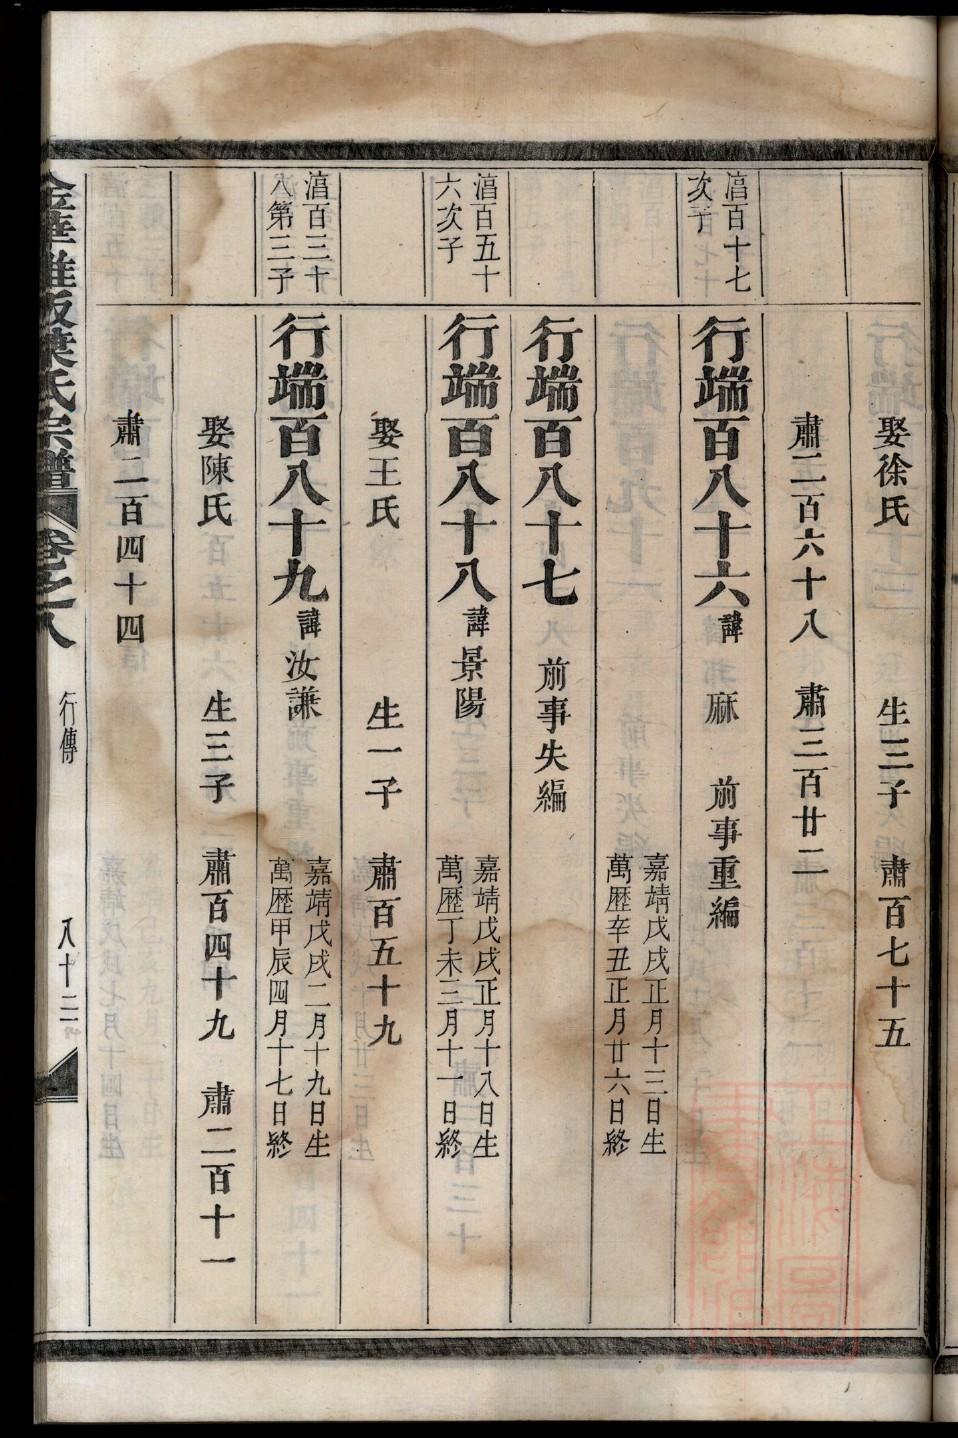 娶徐氏 生三子 肅百七十五
肅二百六十八 肅三百廿二
湻百十七
次子
行端百八十六 諱 麻 前事重編
嘉靖戊戌正月十三日生
萬歷辛丑正月廿六日終
行端百八十七 前事失編
湻百五十
六次子
行端百八十八 諱景陽
嘉靖戊戌正月十八日生
萬歷丁未三月十一日終
娶王氏 生一子 肅百五十九
湻百三十
八第三子
行端百八十九 諱汝謙
嘉靖戊戌二月十九日生
萬歷甲辰四月十七日終
娶陳氏 生三子 肅百四十九 肅二百十一
肅二百四十四
葉氏宗譜 卷之八 行傳 八十二